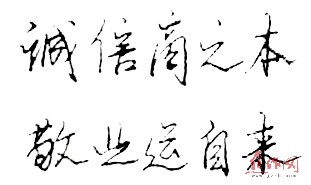 诚信商之本
敬业运自来